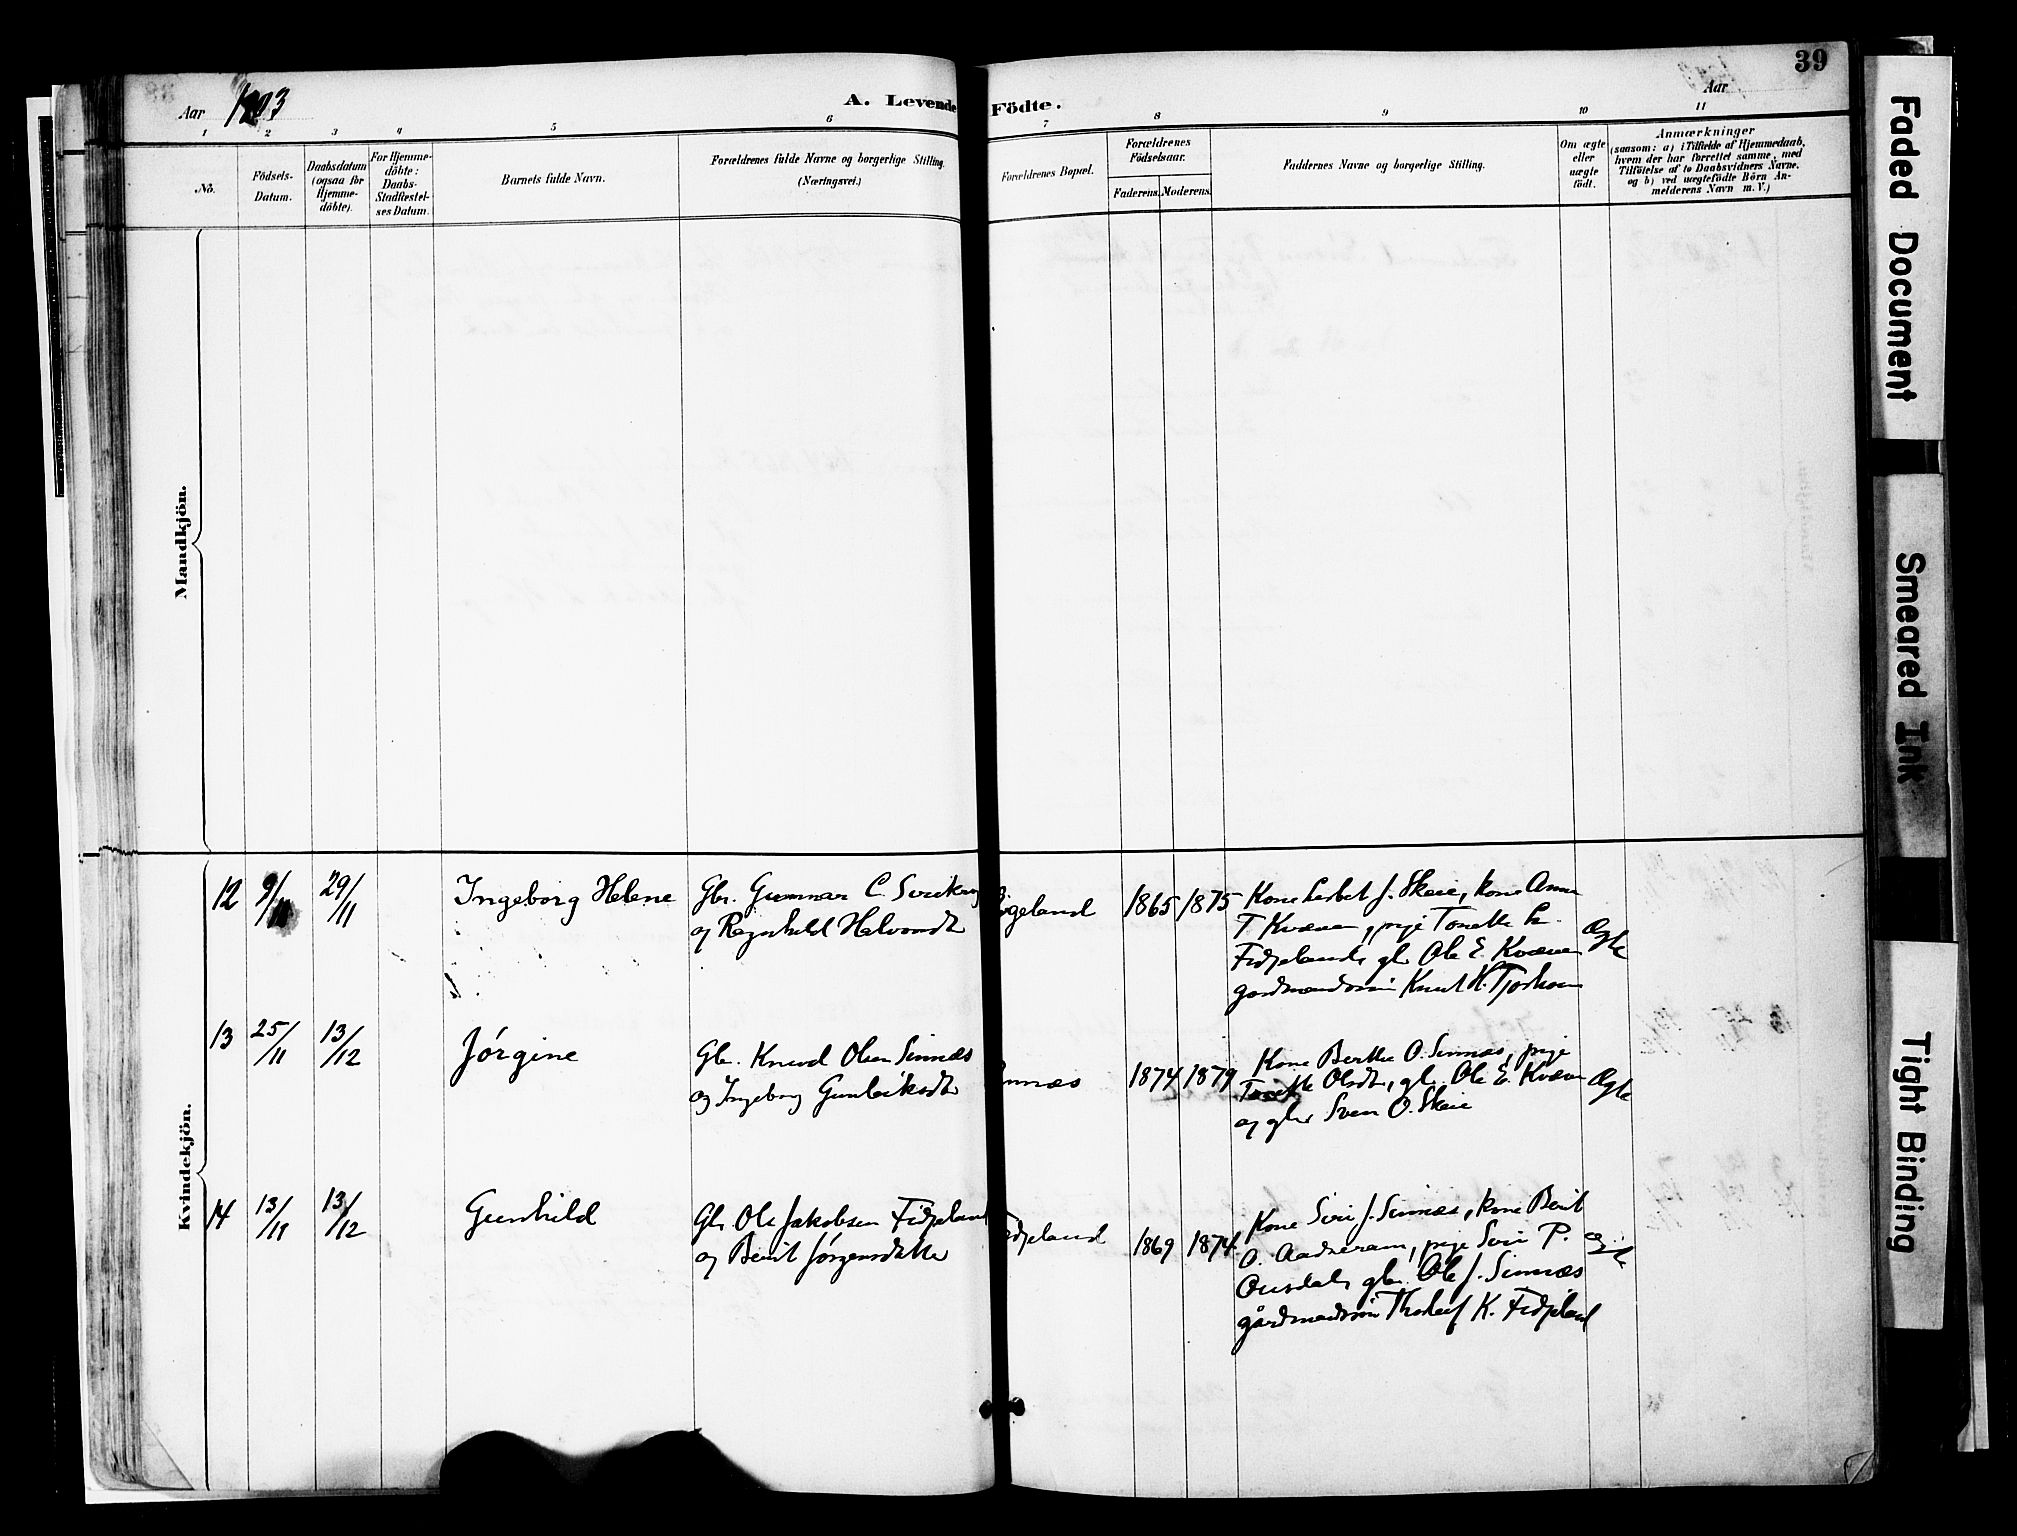 39
Aar 1903
A. Levende Födte.
Aar
1 2 3 4 5 6 7 8 9 10 11
No.
Födsels-
Datum.
Daabsdatum
(ogsaa for
Hjemme-
döbte).
For Hjemme-
döbte:
Daabs-
Stadfæstel-
ses Datum.
Barnets fulde Navn.
Forældrenes fulde Navne og borgerlige Stilling.
(Næringsvei.)
Forældrenes Bopæl.
Forældrenes
Födselsaar.
Faderens. Moderens.
Faddernes Navne og borgerlige Stilling.
Om ægte
eller
uægte
födt.
Anmærkninger
(saasom: a) i Tilfælde af Hjemmedaab,
hvem der har forrettet samme, med
Tilföielse af to Daabsvidners Navne.
og b) ved uægtefödte Börn An-
melderens Navn m. V.)
Mandkjön.
Kvindekjön.
12 9/11 29/11 Ingeborg Helene
Gbr. Gunnar C.
og Ragnhild Halvorsdt
1865 1875
Kone Lisbet J. Skeie, kone Anna
T Kvæven, pige Tonette
Fidjeland, gbr Ole E. Kvæven
gardmandssøn Knut H. Tjørhom
Ægte
13 25/11 13/12 Jørgine
Gbr. Knud Olsen Sinnæs
og Ingeborg Gunleiksdt
innæs
1874 1879
Kone Berthe O. Sinnæs, pige
Tonette Olsdt, gbr. Ole E. Kvæven
og gbr Sven O. Skeie
Ægte
14 13/11 13/12 Gunhild
Gbr. Ole Jakobsen Fidjeland
og Berit Jørgensdatter
Fidjeland
1869 1874
Kone Siri J. Sinnæs, kone Berit
O. Aadneram, pige Siri P.
Ousdal, gbr. Ole J. Sinnæs
gårdmandssøn Tholeif K. Fidjeland
Ægte
Faded Document
Smeared Ink
Tight Binding